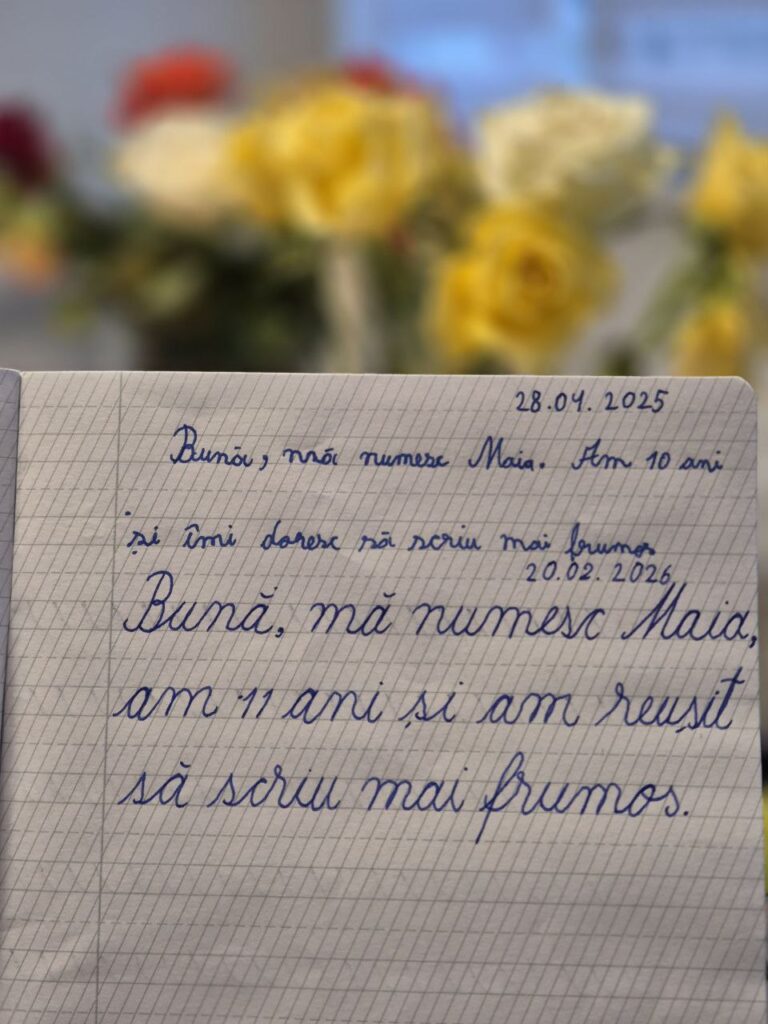 28.04.2025
Bună, mă numesc Maia. Am 10 ani
și îmi doresc să scriu mai frumos
20.02.2026
Bună, mă numesc Maia,
am 11 ani și am reușit
să scriu mai frumos.